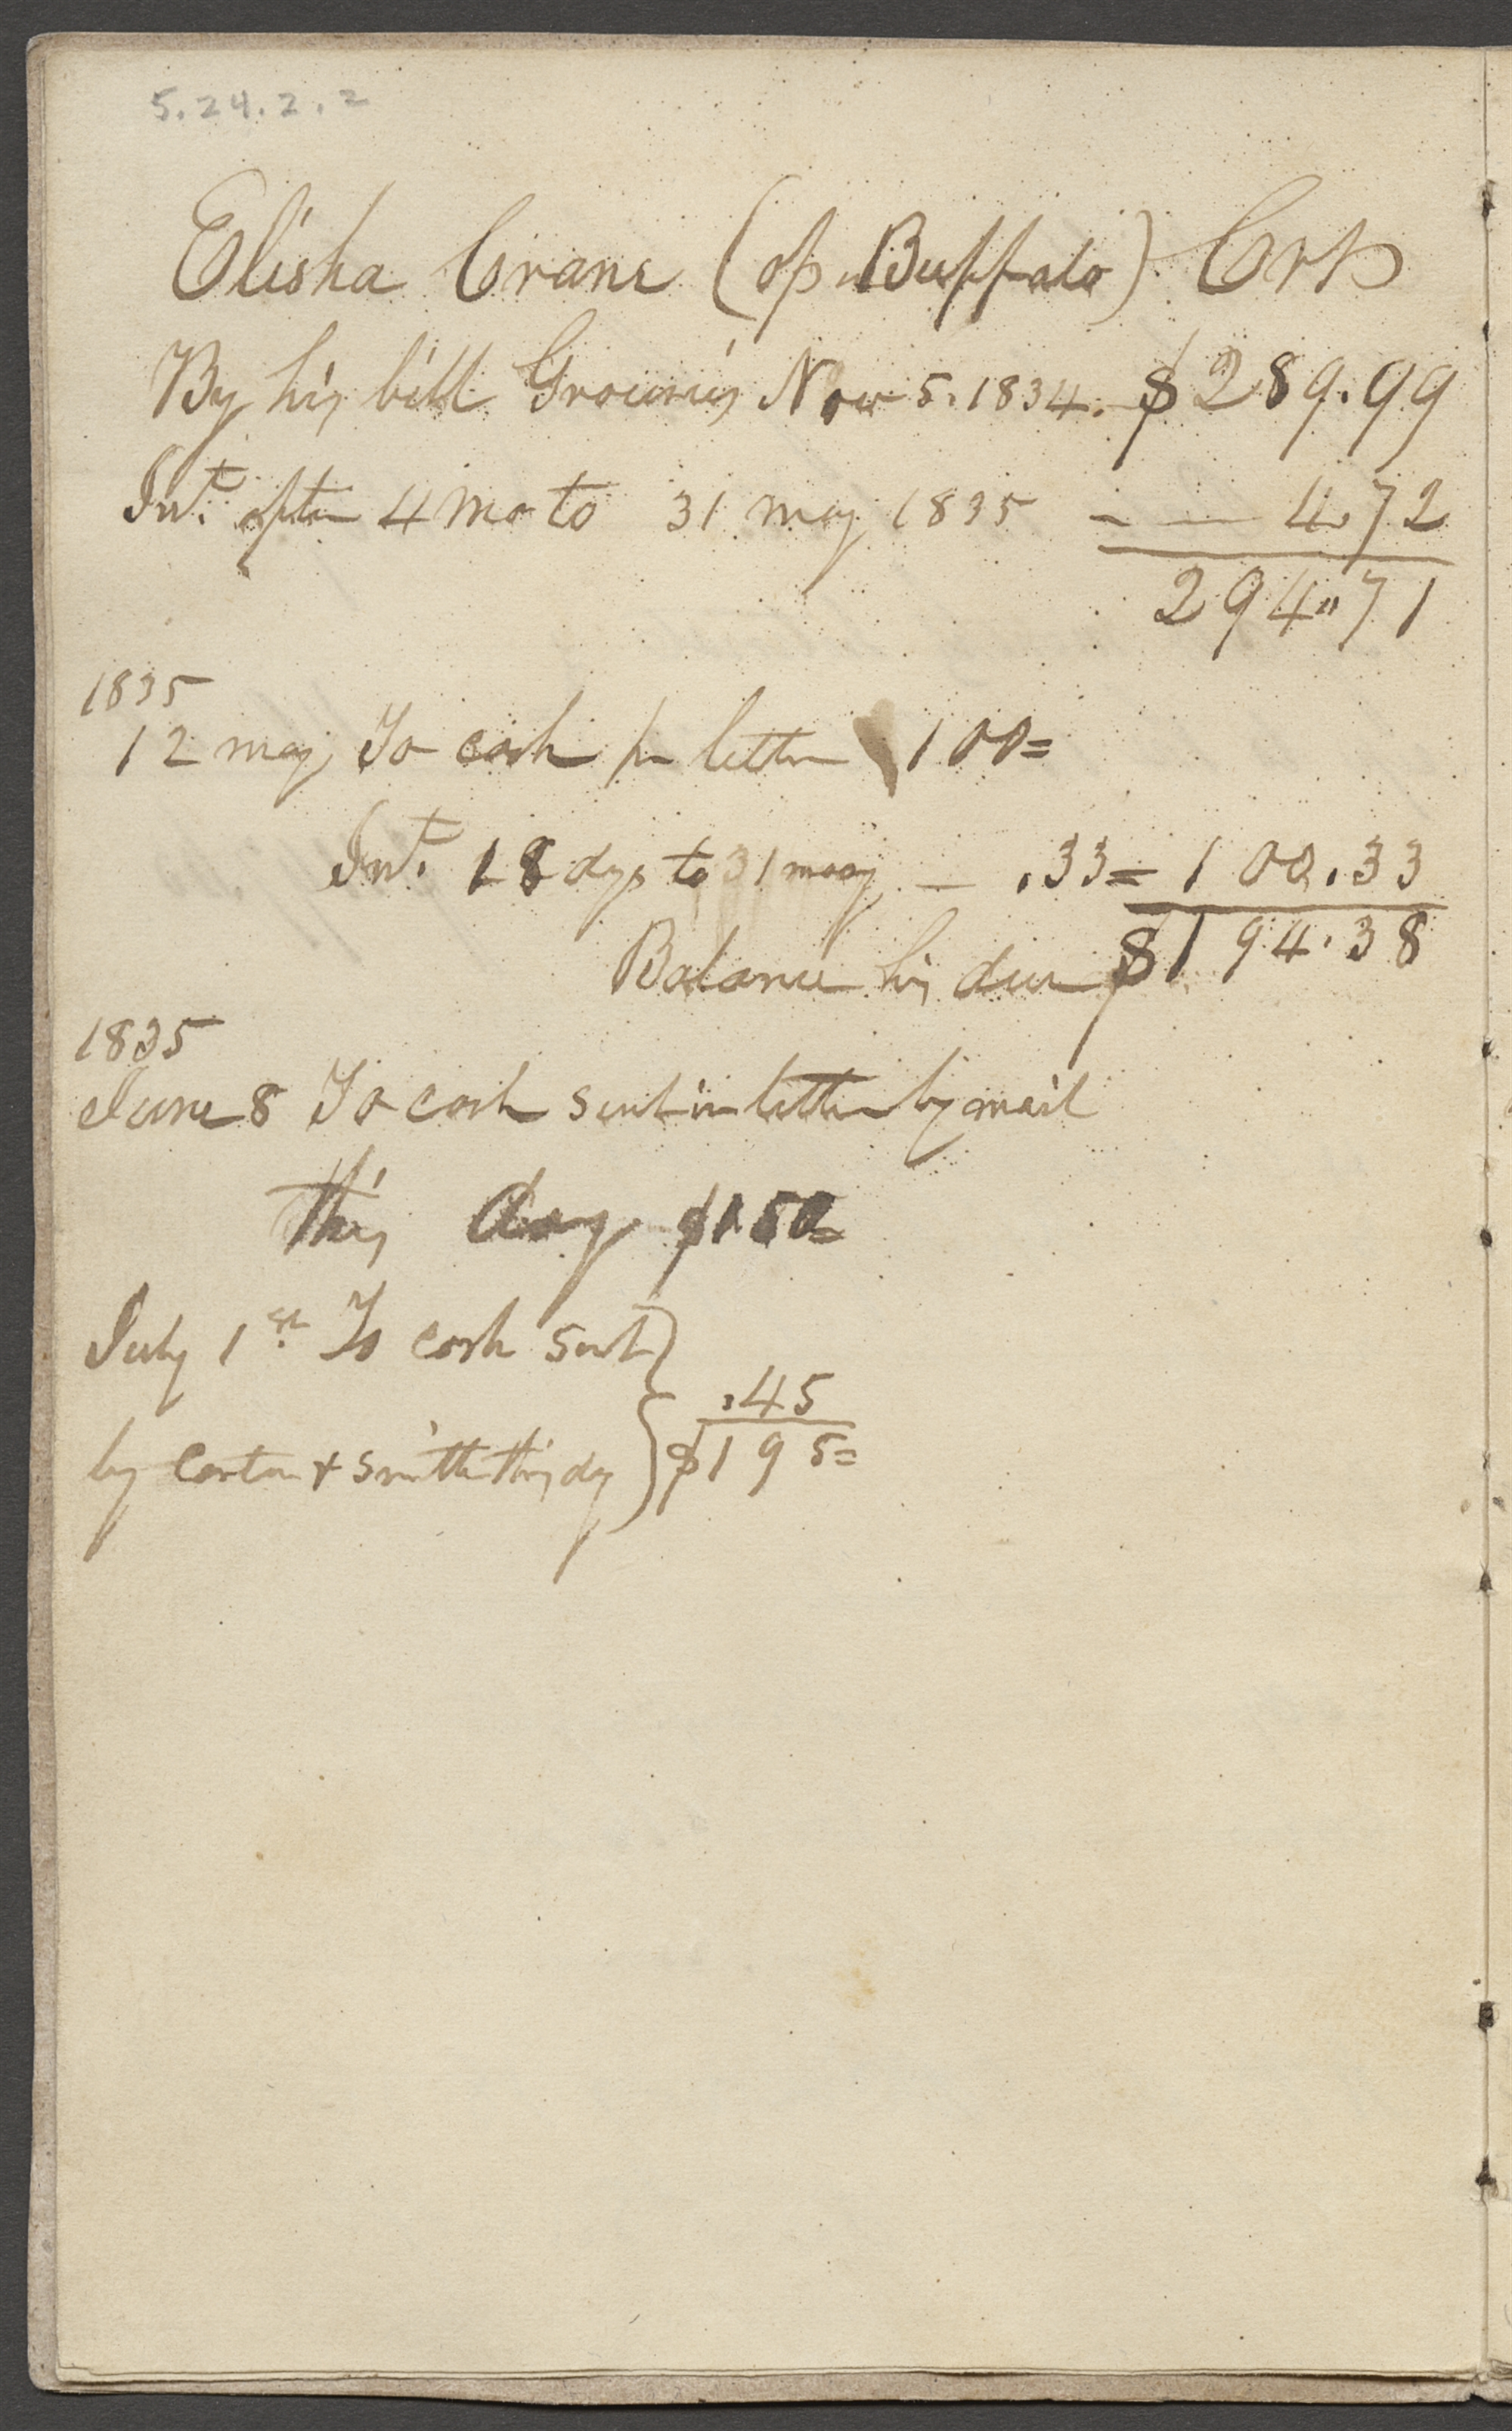 5.24.2.2
Elisha Crane (of Buffalo) Crs
By his bill Groceries Nov 5. 1834. $289.99
Int. after 4 mo to 31 may 1835 - — 4.72
294"71
1835
12 may To cash pr letter 100=
Int. 18 dys to 31 may — .33= 100.33
Balance his due $194.38
1835
June 8 To cash sent in letter by mail
this day $150=
July 1st To cash sent
.45
by Carton + Smith this dy $195=